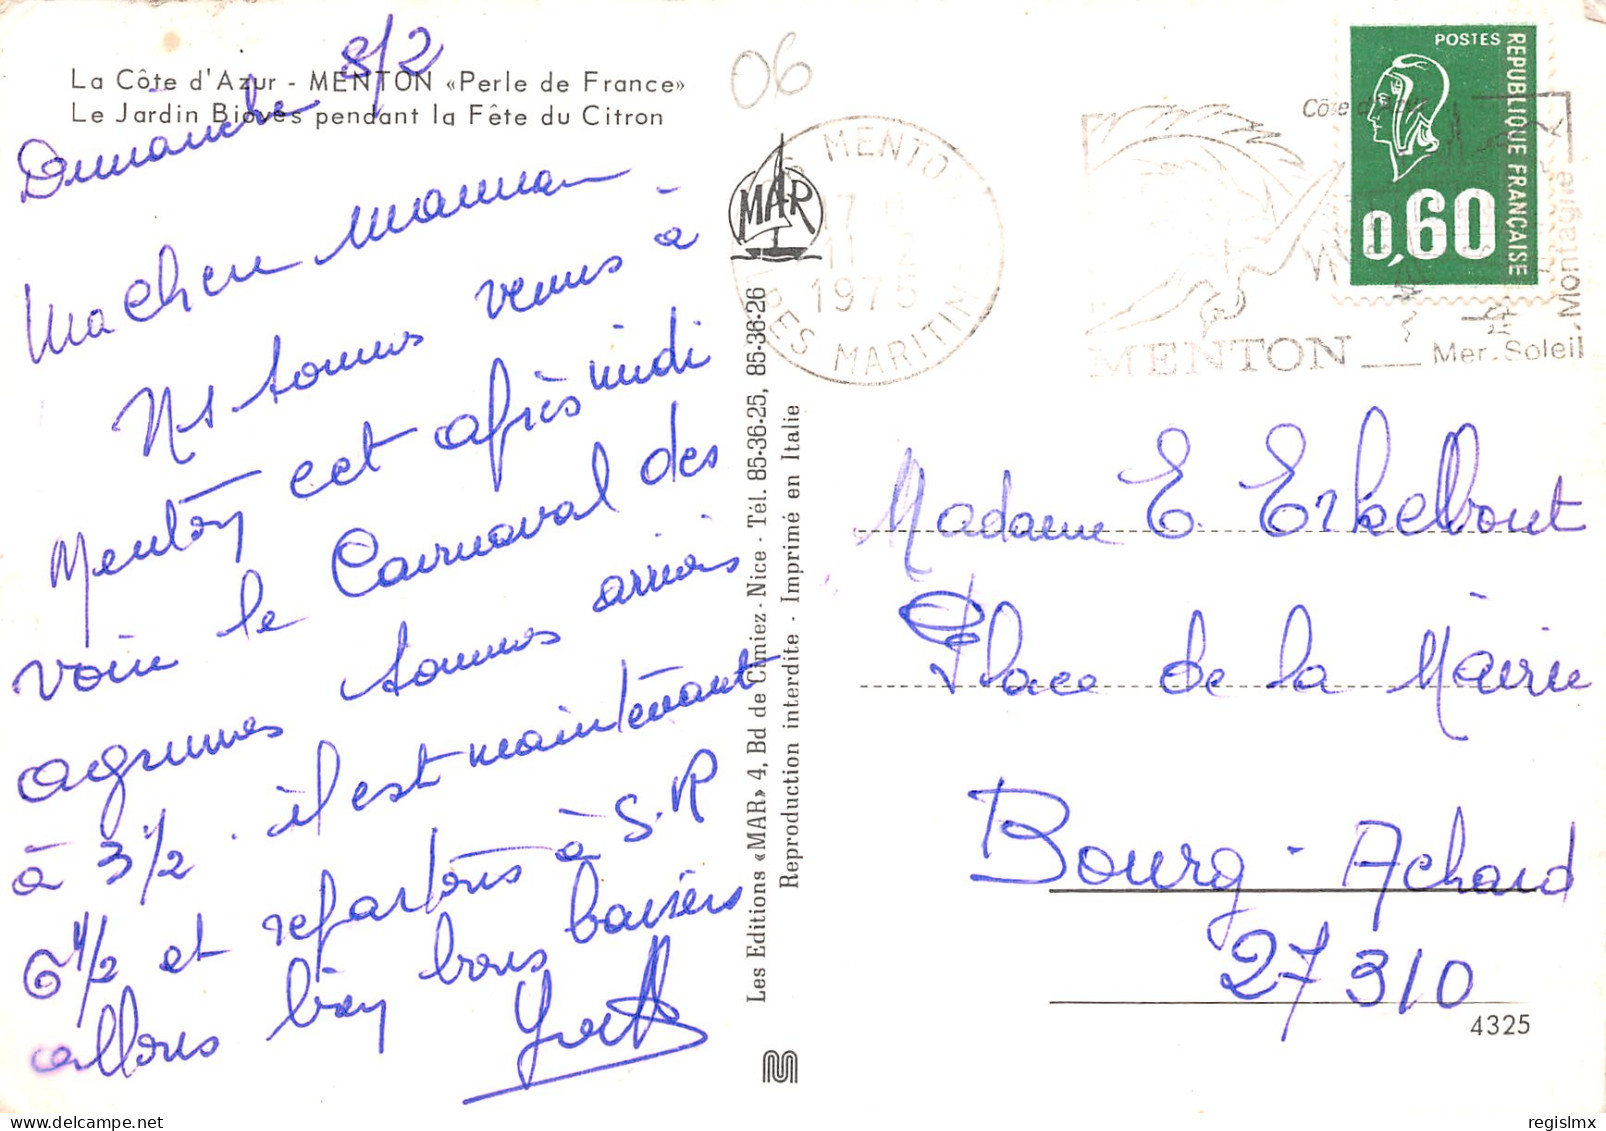 La Côte d'Azur - MENTON «Perle de France»
Le Jardin Biovès pendant la Fête du Citron
Dimanche 8/2
Ma chere maman
Ns sommes venus à
Menton cet après midi
voir le Carnaval des
agrumes sommes arrivés
à 3 1/2. il est maintenant
6 1/2 et repartons à S.R
allons bien bons baisers
Yvette
Les Editions «MAR» 4, Bd de Cimiez - Nice - Tél. 85-36-25, 85-36-26
Reproduction interdite - Imprimé en Italie
MAR
06
MENTO
17 H
11 2
1975
ES MARITIM
Côte d'Azur
MENTON
Mer.Soleil
Montagne
POSTES
REPUBLIQUE FRANÇAISE
0,60
Madame E Erkelbout
Place de la Mairie
Bourg-Achard
27310
4325
regislmx